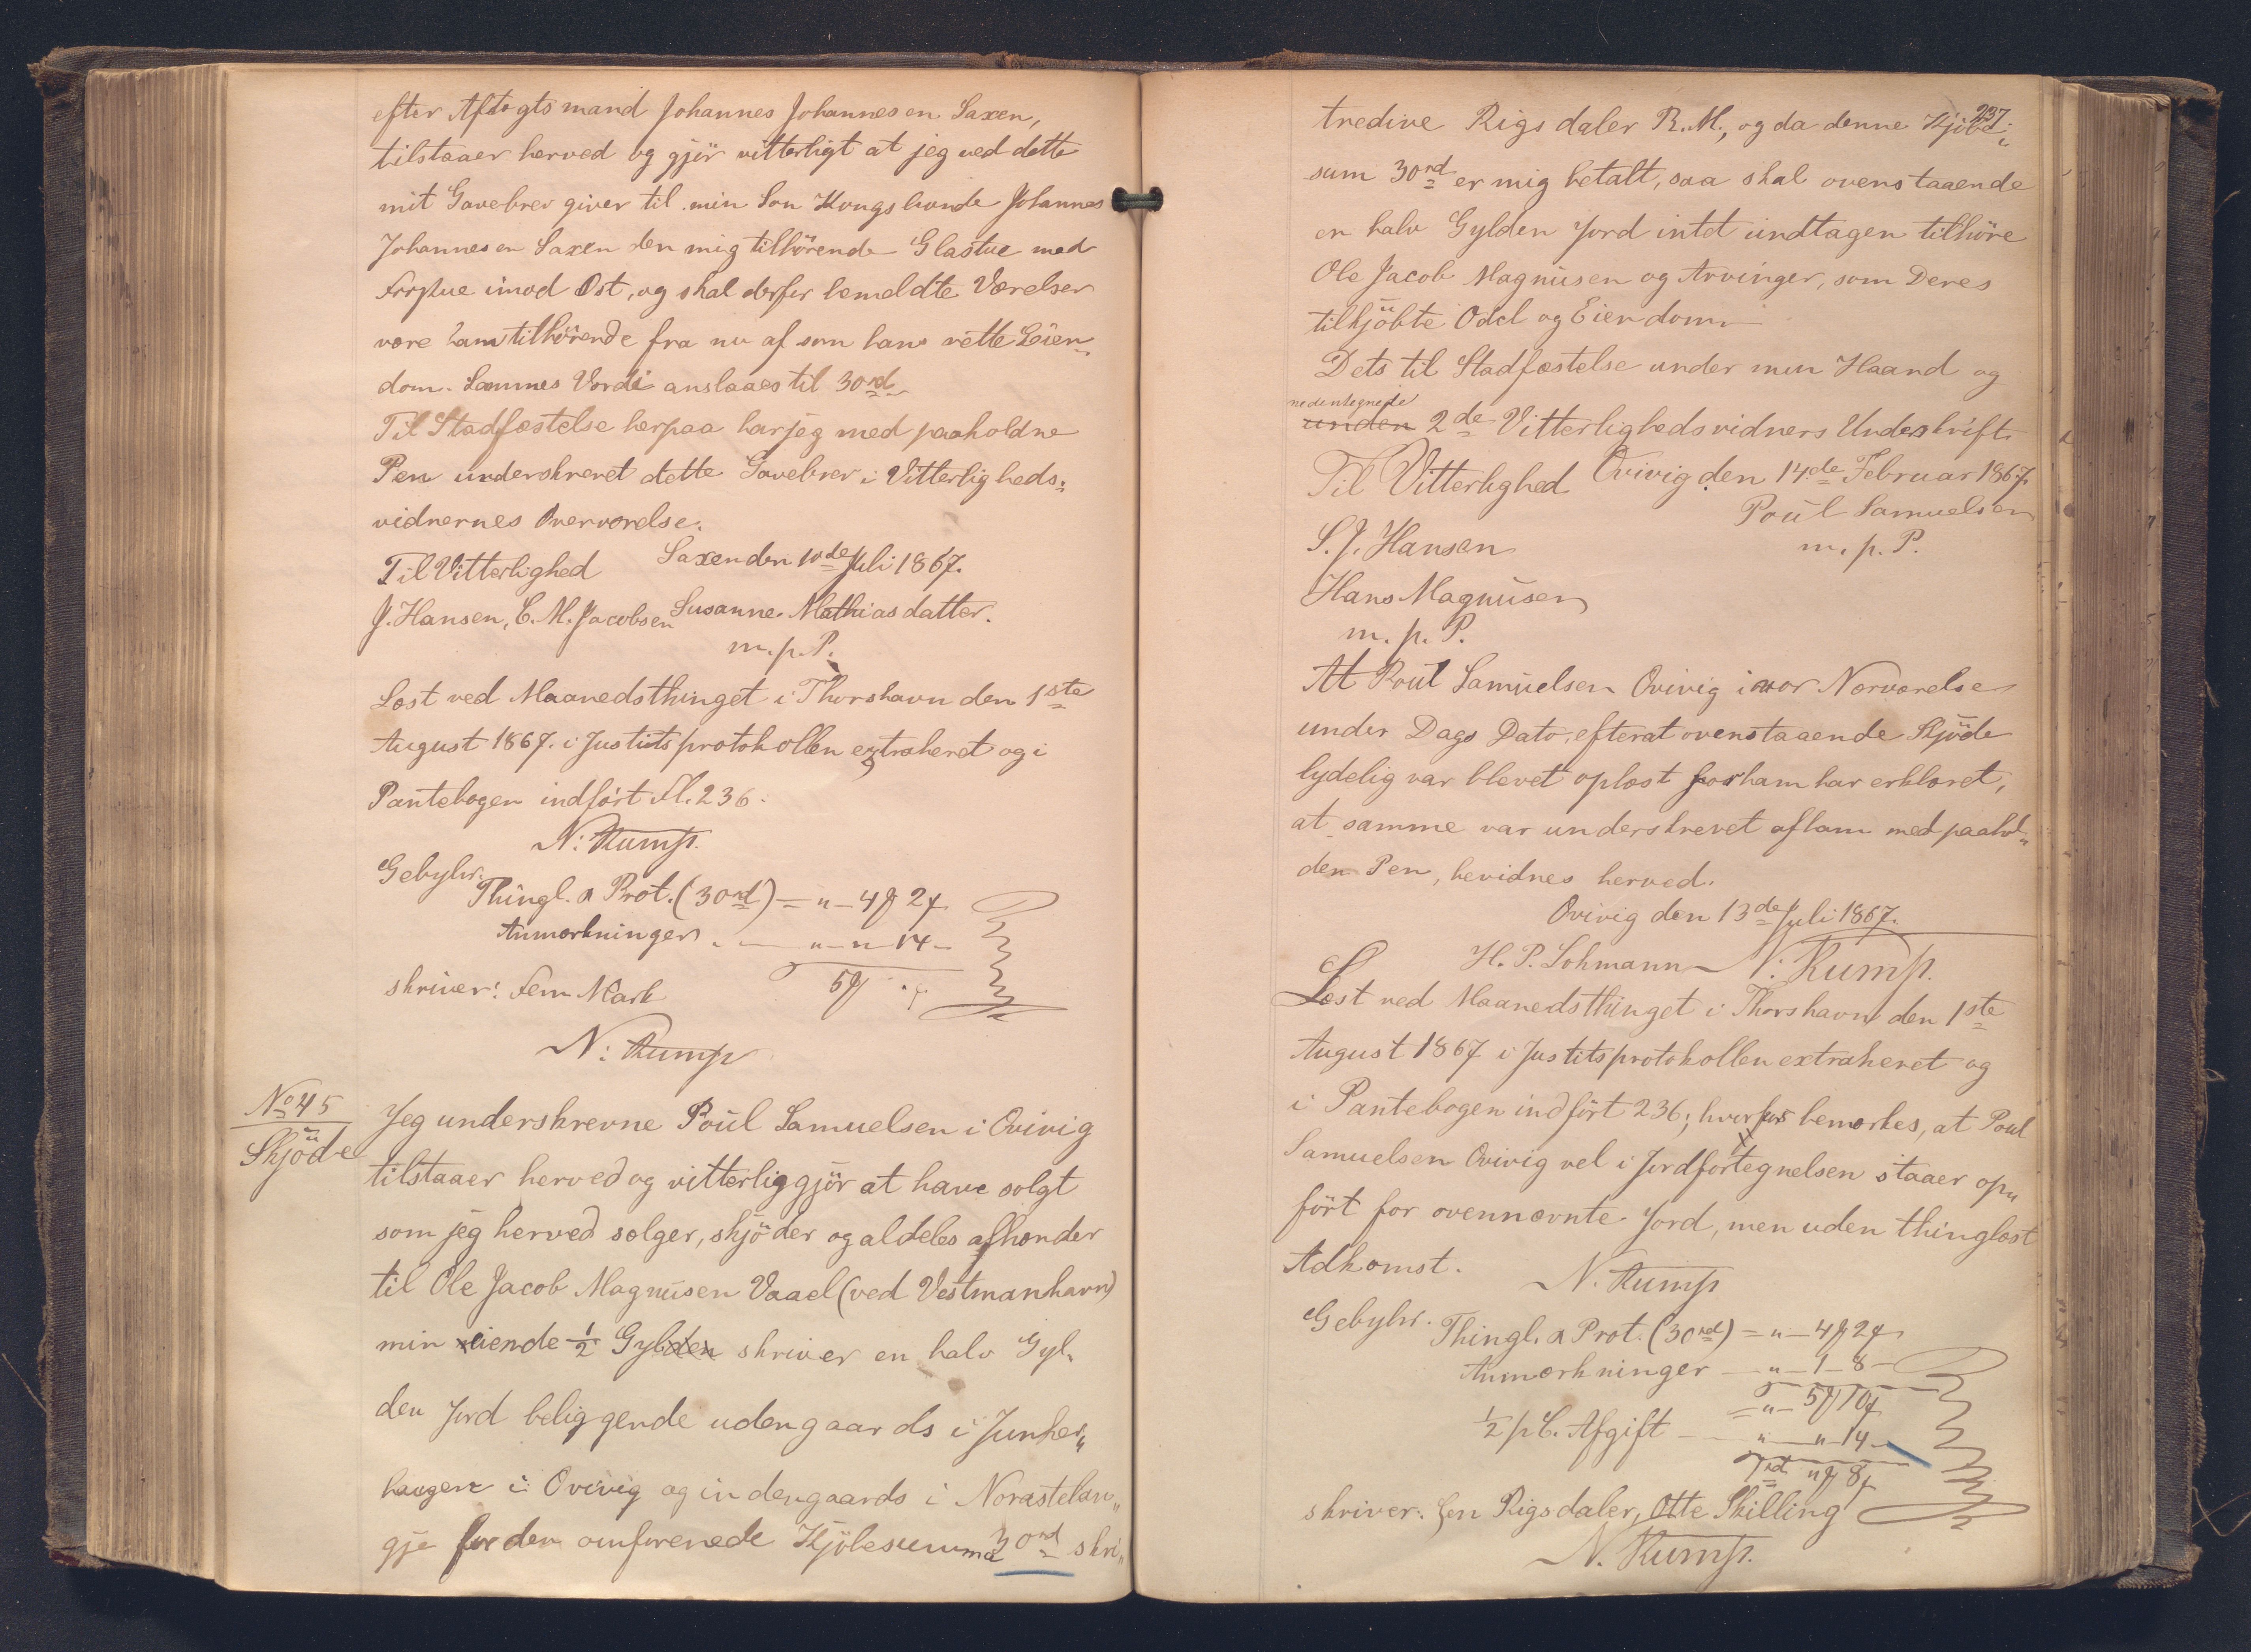 efter Aftægtsmand Johannes Johannesen Saxen,
tilstaaer herved og gjör vitterligt at jeg ved dette
mit Gavebrev giver til min Søn Kongsbonde Johannes
Johannesen Saxen den mig tilhörende Glastue med
Forstue imod Øst, og skal derfor bemeldte Værelser
være ham tilhörende fra nu af som hans rette Eien„
dom. Sammes Værdi anslaaes til 30 rd
Til Stadfæstelse herpaa har jeg med paaholdne
Pen underskrevet dette Gavebrev i Vitterligheds„
vidnernes Overværelse.
Saxen den 10de Juli 1867.
Til Vitterlighed
J. Hansen, C. M. Jacobsen Susanne Mathiasdatter.
m. p. P.
Læst ved Maanedsthinget i Thorshavn den 1ste
August 1867. i Justitsprotokollen extraheret og i
Pantebogen indfört Fl. 236.
N: Rump.
Gebyhr.
Thingl. & Prot. (30 rd) = „ – 4 ₰ 2 ₰
Anmærkninger . — „ – „ – 14 –
5 ₰ „ ₰
skriver: Fem Mark
N: Rump
No 45
Skjöde
Jeg underskrevne Poul Samuelsen i Qvivig
tilstaaer herved og vitterliggjör at have solgt
som jeg herved sælger, skjöder og aldeles afhænder
til Ole Jacob Magnusen Vaael (ved Vestmanhavn)
min eiende 1/2 Gylden skriver en halv Gyl„
den Jord beliggende udengaards i Junker„
haugen i Qvivig og indengaards i Norastelan„
gje for den omforenede Kjöbesumma 30 rd skri„
237.
tredive Rigsdaler R. M., og da denne Kjöbe„
sum 30 rd er mig betalt, saa skal ovenstaaende
en halv Gylden Jord intet undtagen tilhöre
Ole Jacob Magnusen og Arvinger, som Deres
tilkjöbte Odel og Eiendom
Dets til Stadfæstelse under min Haand og
nedentegnede
unden 2de Vitterlighedsvidners Underskrift.
Qvivig den 14de Februar 1867.
Til Vitterlighed
Poul Samuelsen
S. J. Hansen
m. p. P.
Hans Magnusen
m. p. P.
At Poul Samuelsen Qvivig i vor Nærværelse
under Dags Dato, efterat ovenstaaende Skjöde
lydelig var blevet oplæst for ham har erklæret,
at samme var underskrevet af ham med paahol„
den Pen, bevidnes herved.
Qvivig den 13de Juli 1867.
H. P. Lohmann N: Rump.
Læst ved Maanedsthinget i Thorshavn den 1ste
August 1867 i Justitsprotokollen extraheret og
i Pantebogen indfört 236; hverfor bemærkes, at Poul
Samuelsen Qvivig vel i Jordfortegnelsen staaer op„
fört for ovennævnte Jord, men uden thinglæst
Adkomst.
N. Rump
Gebyhr. Thingl. & Prot. (30 rd) = „ – 4 ₰ 2 ₰
Anmærkninger — „ – 1 – 8 –
= „ – 5 ₰ 10 ₰
1/2 pC. Afgift — „ – „ – 14 –
1 rd „ ₰ 8 ₰
skriver: Een Rigsdaler, Otte Skilling
N. Rump.